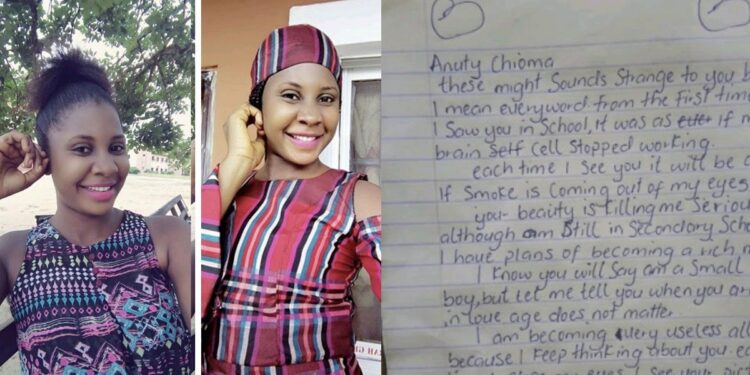 Anuty Chioma
these might Sounds Strange to you b
I mean everyword from the First time
I Saw you in School, it was as if m
brain self cell stopped working.
each time I See you it will be a
If Smoke is Coming out of my eyes
your beaity is killing me Seriou
although am Still in Secondary Scho
I have plans of becoming a rich m
I know you will Say am a Small
boy, but let me tell you when you ar
in love age does not matter.
I am becoming very useless all
because I keep thinking about you ea